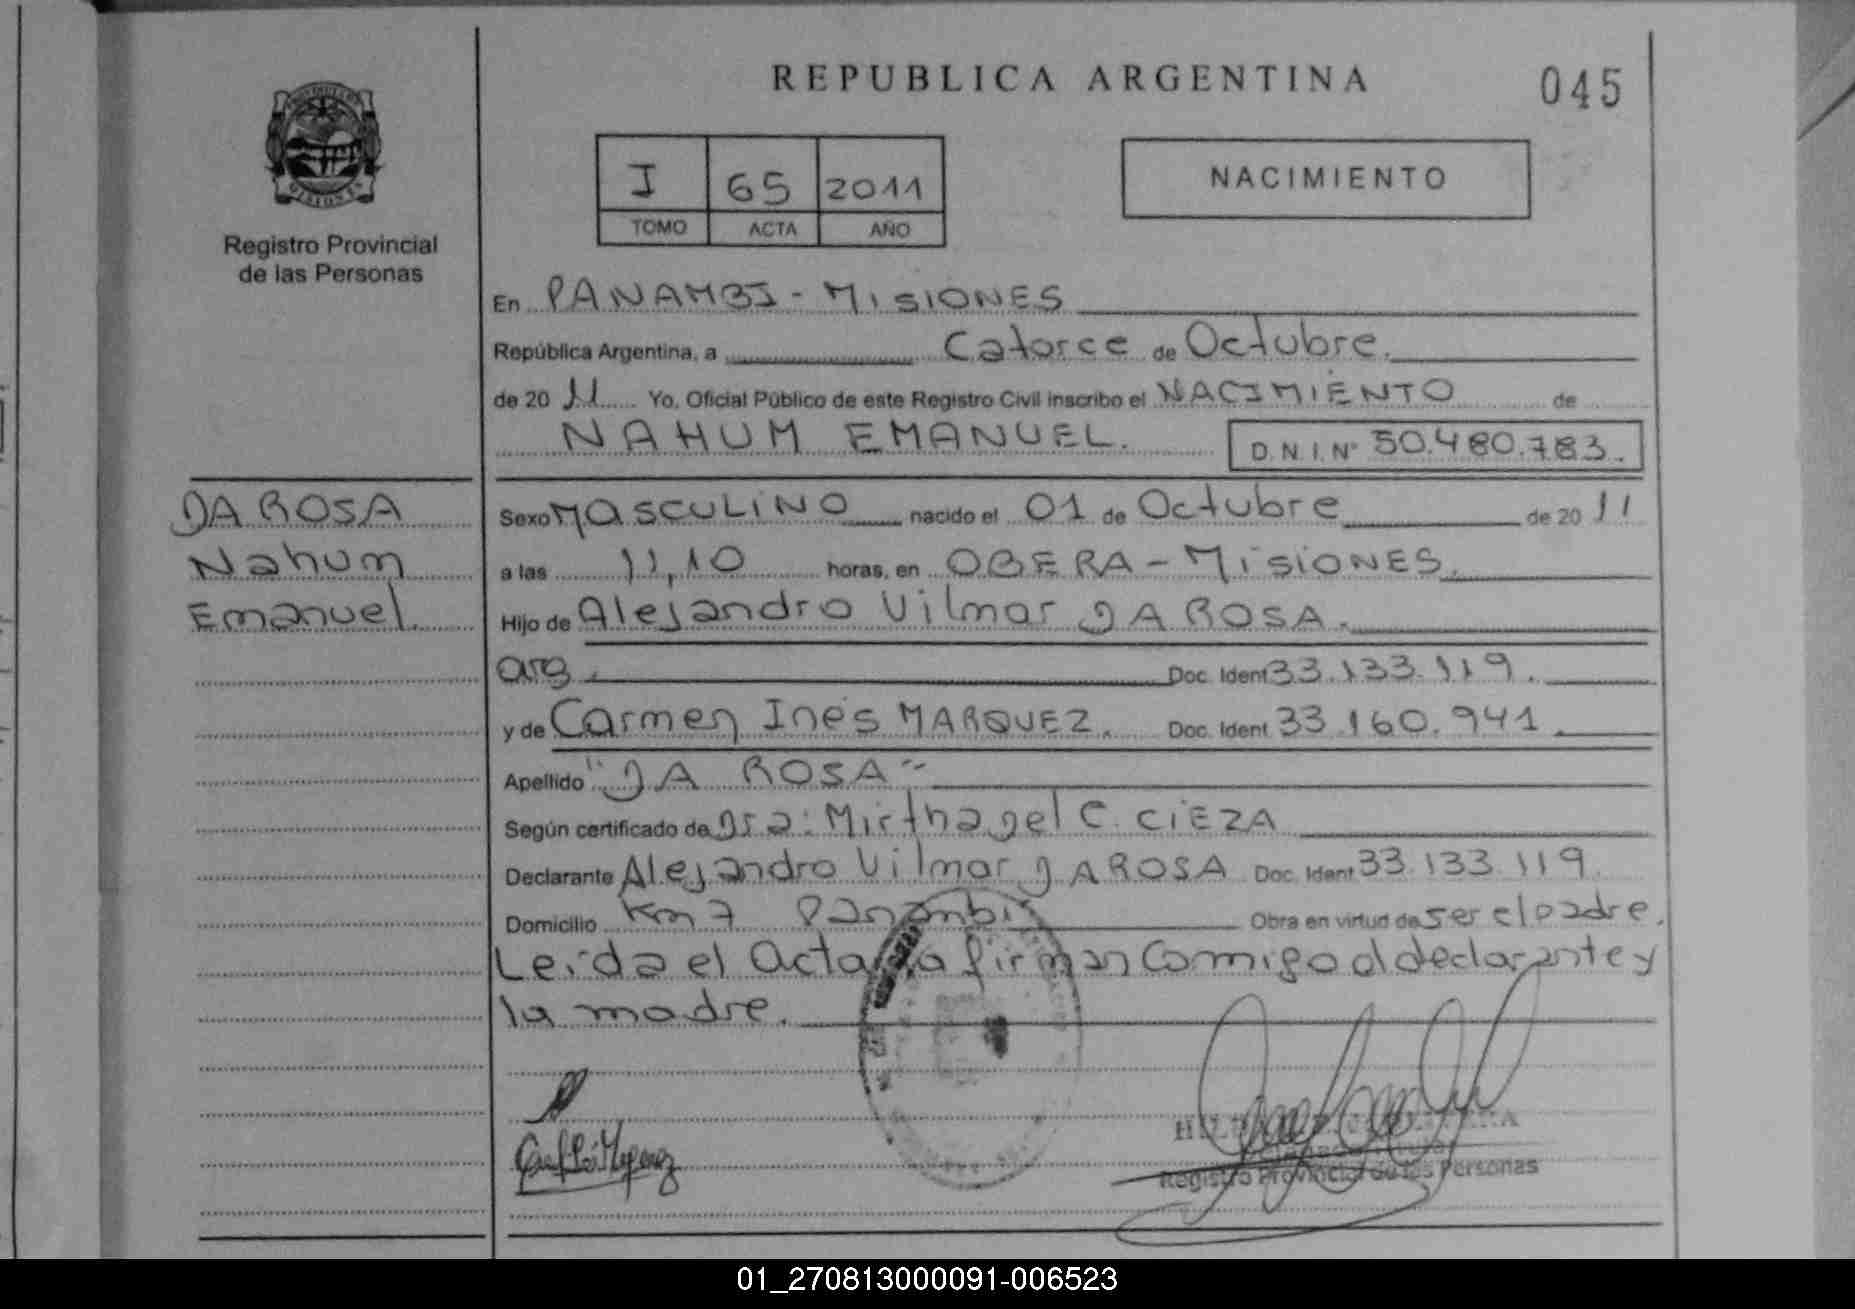 REPUBLICA ARGENTINA
045
I 65 2011
TOMO ACTA AÑO
NACIMIENTO
MISIONES
Registro Provincial
de las Personas
En PANAMBI - MISIONES
República Argentina, a Catorce de Octubre.
de 20 11 Yo, Oficial Público de este Registro Civil inscribo el NACIMIENTO de
NAHUM EMANUEL. D.N.I.Nº 50.480.783.
DA ROSA
Nahum
Emanuel.
Sexo MASCULINO nacido el 01 de Octubre de 20 11
a las 11,10 horas, en OBERA - MISIONES.
Hijo de Alejandro Vilmar DA ROSA.
arg. Doc. Ident 33.133.119.
y de Carmen Inés MARQUEZ. Doc. Ident 33.160.941.
Apellido "DA ROSA"
Según certificado de Dra: Mirtha del C. CIEZA
Declarante Alejandro Vilmar DA ROSA Doc. Ident 33.133.119
Domicilio Km 7 Panambi Obra en virtud de ser el padre.
Leida el Acta la firman Comigo el declarante y
la madre.
Registro Provincial de las Personas
01_270813000091-006523